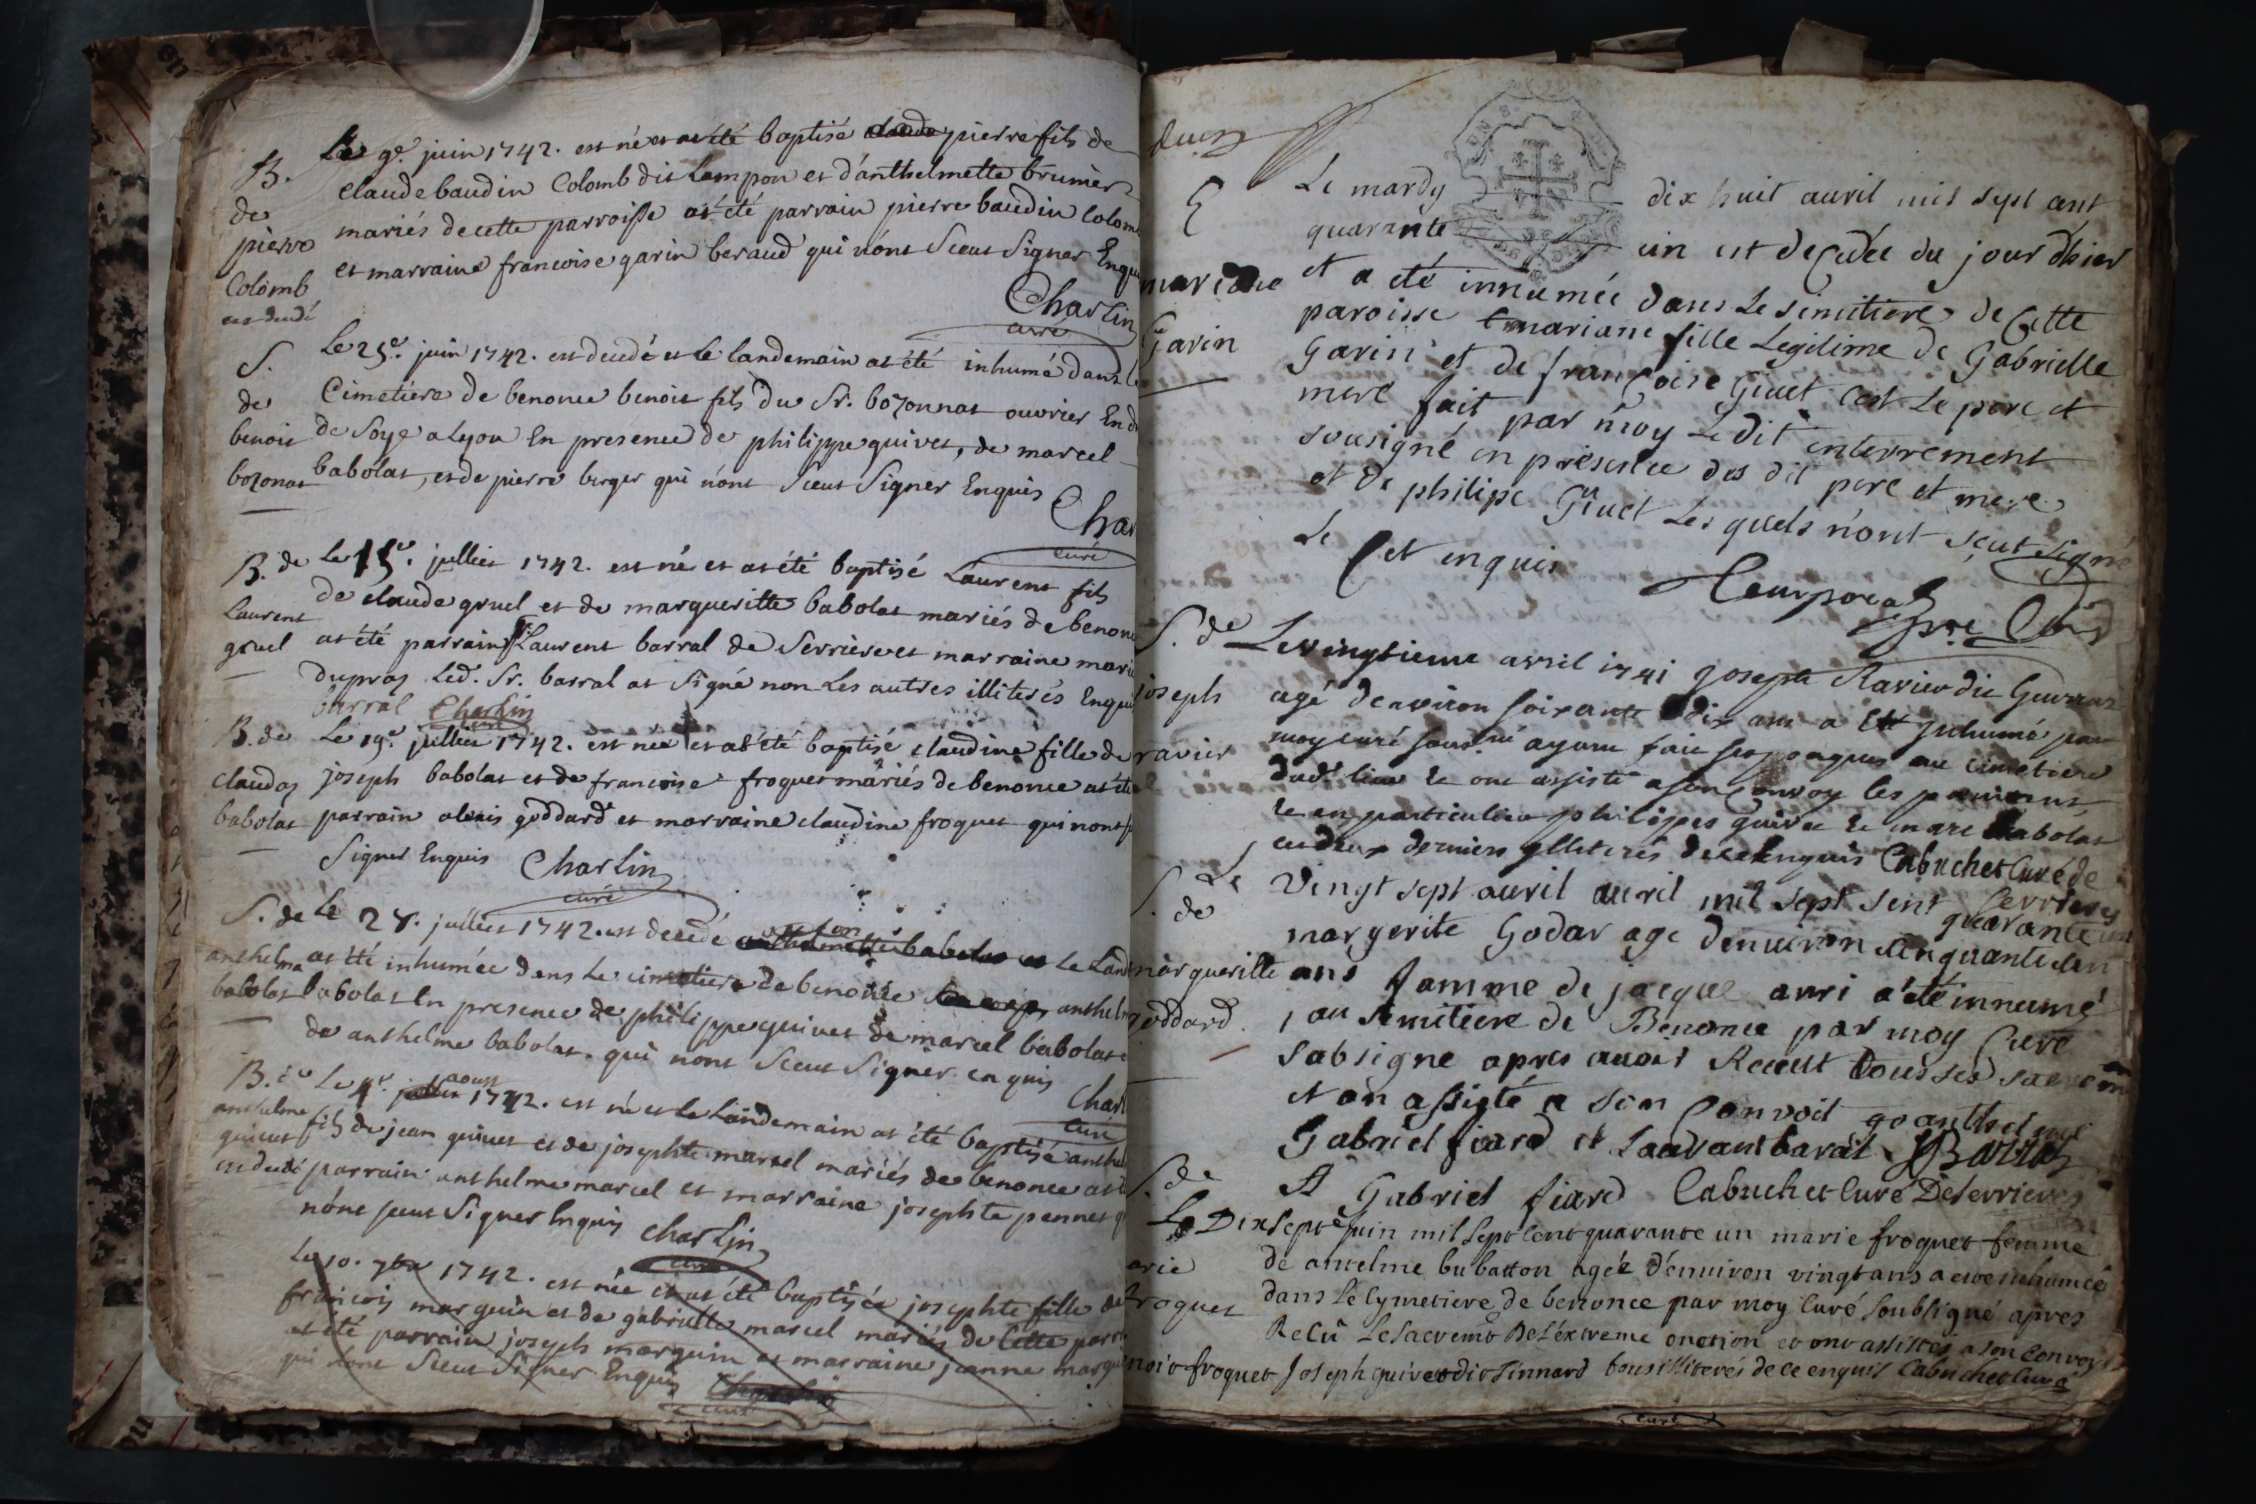 B. Le 9e. juin 1742. est né et at été baptisé pierre fils de
de claude baudin Colomb dit Lampon et d'anthelmette brunier
pierre mariés de cette parroisse at été parrain pierre baudin Colom
Colomb et marraine francoise garin beraud qui n'ont Sceut Signer Enqu
est decedé
Charlin
curé
S. Le 25e. juin 1742. est decedé et le landemain at été inhumé dans le
de Cimetiere de benonce benoit fils du Sr. bozonnat ouvrier En d
benoit de Soye a Lyon En presence de philippe quivet, de marcel
bozonat babolat, et de pierre berger qui n'ont Sceut Signer Enquis
Char
curé
B. de Le 15e. julliet 1742. est né et at été baptisé Laurent fils
Laurent de claude gruel et de margueritte babolat mariés de benonce
gruel at été parrain Sr. Laurent barral de Serriere et marraine marie
dupraz Led. Sr. barral at Signé non Les autres illiterés Enqui
barral Charlin
curé
B. de Le 19e. jullien 1742. est née et at été baptisé claudine fille de
claudaz joseph babolat et de francoise froquet mariés de benonce at été
babolat parrain alexis goddard et marraine claudine froquet qui nont s
Signer Enquis Charlin
curé
S. de Le 28. jullien 1742. est decedé anthelmette babolat et Le Land
anthelma at été inhumée dens Le cimetiere de benonce anthelm
babolat babolat En presence de philippe quivet de marcel babolat e
de anthelme babolat. qui nont Sceut Signer enquis
Charl
curé
B. de Le 4e. jullien aoust 1742. est né et le Landemain at été baptisé anthel
anthelme fils de jean quivet et de josephte marcel mariés de benonce at
quivet parrain anthelme marcel et marraine josephte pennet q
est decedé n'ont sceut Signer Enquis Charlin
curé
Le 10. 7bre 1742. est née et at été baptisée josephte fille de
francois marguin et de gabrielle marcel mariés de Cette parro
at été parrain joseph marguin et marraine jeanne margu
qui n'ont Sceut Signer Enquis Charlin
curé
Le mardy dix huit auril mil sept cent
quarante un est decedée du jour d'hier
mariane et a été innumée dans Le simitiere de Cette
Garin paroisse mariane fille Legitime de Gabrielle
Garin et de françoise Giuet C'est Le pere et
mere fait par moy Le dit interrement
sousigné en presence des dit pere et mere
et de philipe Giuet Les quels n'ont sçut signé
Le et enquis
S. de Le vingtieme avril 1741 joseph Ravier dit Guerraz
joseph agé denviron soixante dix ans a Eté Inhumé par
ravier moy curé soussigné ayant fait ses paques au cimetiere
dudt lieu et ont assisté a son Convoy les parents
et en particulier philippes quivet et marc babolat
ces deux derniers illiterés de ce enquis Cabuchet Curé de
Serrieres
S. Le Vingt sept auril auril mil sept sent quarante un
de margerite Godar age denuiron sinquante sin
margueritte ans famme de jacque anri a'été innumé
goddard. au simitiere de Benonce par moy Cure
sabsigne apres auoit Receut tous ses sacrem
et on assisté a son Convoit goanthelme
Gabriel fiard et Laurant barat
A Gabriel fiard Cabuchet Curé De Serrieres
S. de Le Dix Sept juin mil Sept Cent quarante un marie froquet femme
arie de antelme bubatton agée d'enuiron vingt ans a este inhumée
froquet dans le Cymetiere de benonce par moy Curé Soubsigné apres
Recû Le Sacremt De L'extreme onction et ont assistés a son Convoy
noit froquet Joseph quivet dit Sinnard tous illiterés de ce enquis Cabuchet Curé
curé